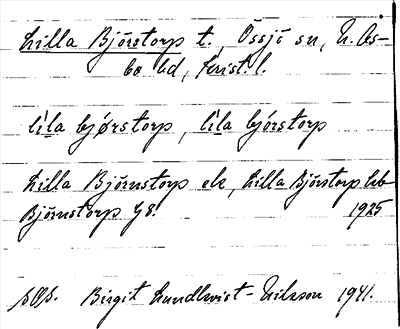 Lilla Björstorp t., Össjö sn, N. Ås-
bo hd, Krist. l.
lìla bjǿrstorp, lìla bjórstorp
Lilla Björnstorp ek, Lilla Björstorp hb
Björnstorp GS. 1925
Birgit Lundkvist-Nilsson 1941.